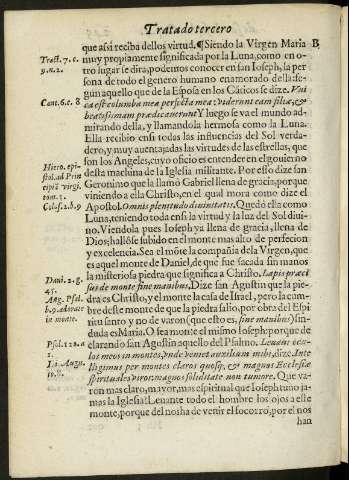 Tratado tercero
que assi reciba dellos virtud. ¶Siendo la Virgen Maria B
Tract. 7. c.
muy propiamente significada por la Luna, como en o-
9. n. 2.
tro lugar se dira, podemos conocer en san Ioseph, la per
sona de todo el genero humano enamorado della: se-
gun aquello que de la Esposa en los Cāticos se dize. Vni
Cant. 6. c. 8
ca est columba mea perfecta mea: viderunt eam filiæ, &
beatissimam prædicauerunt. Y luego se va el mundo ad-
mirando della, y llamandola hermosa como la Luna.
Ella recibio en si todas las influencias del Sol verda-
dero, y muy auentajadas las virtudes de las estrellas, que
son los Angeles, cuyo oficio es entender en el gouierno
Hiero. epi-
desta machina de la Iglesia militante. Por esso dize san
stol. ad Prin
Geronimo que la llamò Gabriel llena de gracia, porque
cipiā virgi.
viniendo a ella Christo, en el qual mora como dize el
tom. 1.
Colos. 2. b. 9
Apostol. Omnis plenitudo diuinitatis. Quedò ella como
Luna, teniendo toda en si la virtud y la luz del Sol diui-
no. Viendola pues Ioseph ya llena de gracia, llena de
Dios; hallòse subido en el monte mas alto de perfecion
y excelencia. Sea el mōte la compañia de la Virgen, que
es aquel monte de Daniel, de que fue sacada sin manos
la misteriosa piedra que significa a Christo. Lapis præci
Dani. 2. g.
sus de monte sine manibus. Dize san Agustin que la pie-
45.
Ang. Psal.
dra es Christo, y el monte la casa de Israel, pero la cum-
bre deste monte de que la piedra salio, por obra del Espi
in monte.
ritu santo y no de varon (que esto es, sine manibus) sin
duda es Maria. O sea monte el mismo Ioseph: porque de
Psal. 120. a
clarando san Agustin aquello del Psalmo. Leuaui ocu-
los meos in montes, vnde veniet auxilium mihi, dize. Inte
lligimus per montes claros quosq; & magnos Ecclesiæ
spirituales viros: magnos soliditate non tumore. Que va-
ron mas claro, mayor, mas espiritual que Ioseph tuuo ja-
mas la Iglesia? Leuante todo el hombre los ojos a este
monte, porque del nos ha de venir el socorro, por el nos
han